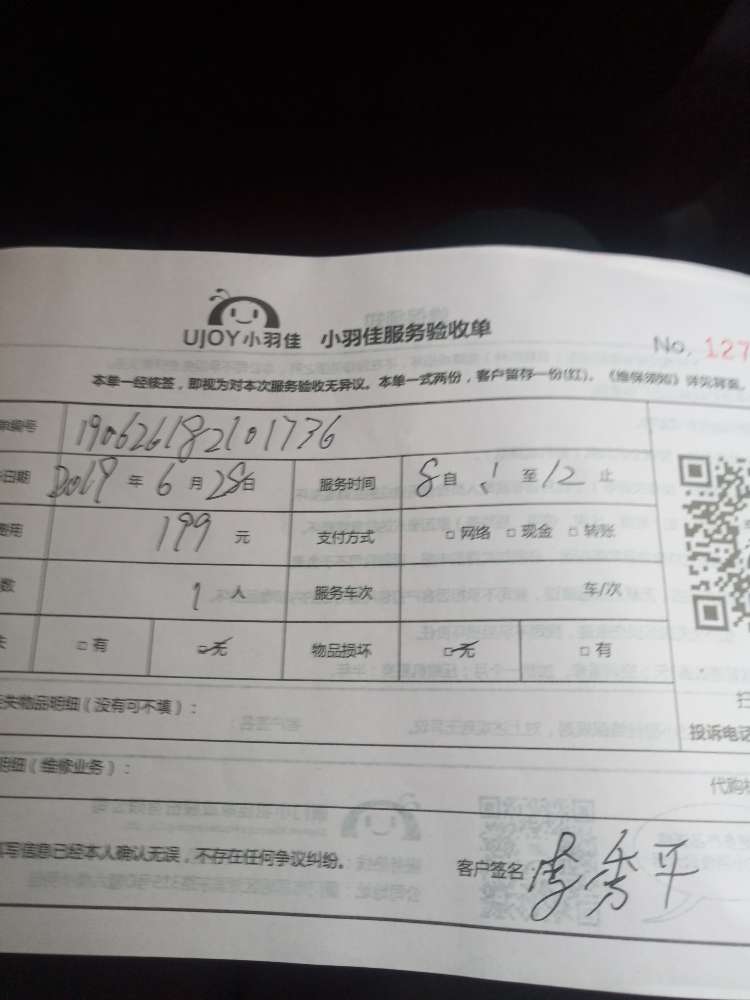 UJOY小羽佳 小羽佳服务验收单
No. 127
本单一经核签，即视为对本次服务验收无异议。本单一式两份，客户留存一份(红)。《维保须知》详见背面。
单编号 190626182101736
日期 2019 年 6 月 28 日 服务时间 8 自 至 12 止
费用 199 元 支付方式 □ 网络 □ 现金 □ 转账
数 1 人 服务车次 车/次
失 □ 有 □ 无 物品损坏 □ 无 □ 有
失物品明细（没有可不填）：
扫
投诉电话
明细（维修业务）：
代购
写信息已经本人确认无误，不存在任何争议纠纷。 客户签名 李秀平